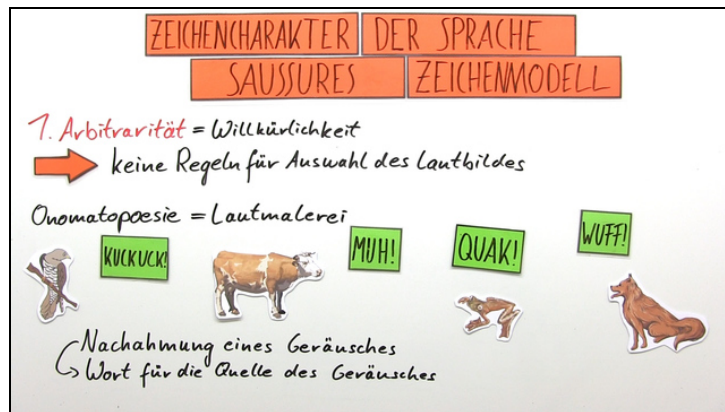 ZEICHENCHARAKTER DER SPRACHE
SAUSSURES ZEICHENMODELL
1. Arbitrarität = Willkürlichkeit
keine Regeln für Auswahl des Lautbildes
Onomatopoesie = Lautmalerei
KUCKUCK! MUH! QUAK! WUFF!
Nachahmung eines Geräusches
Wort für die Quelle des Geräusches